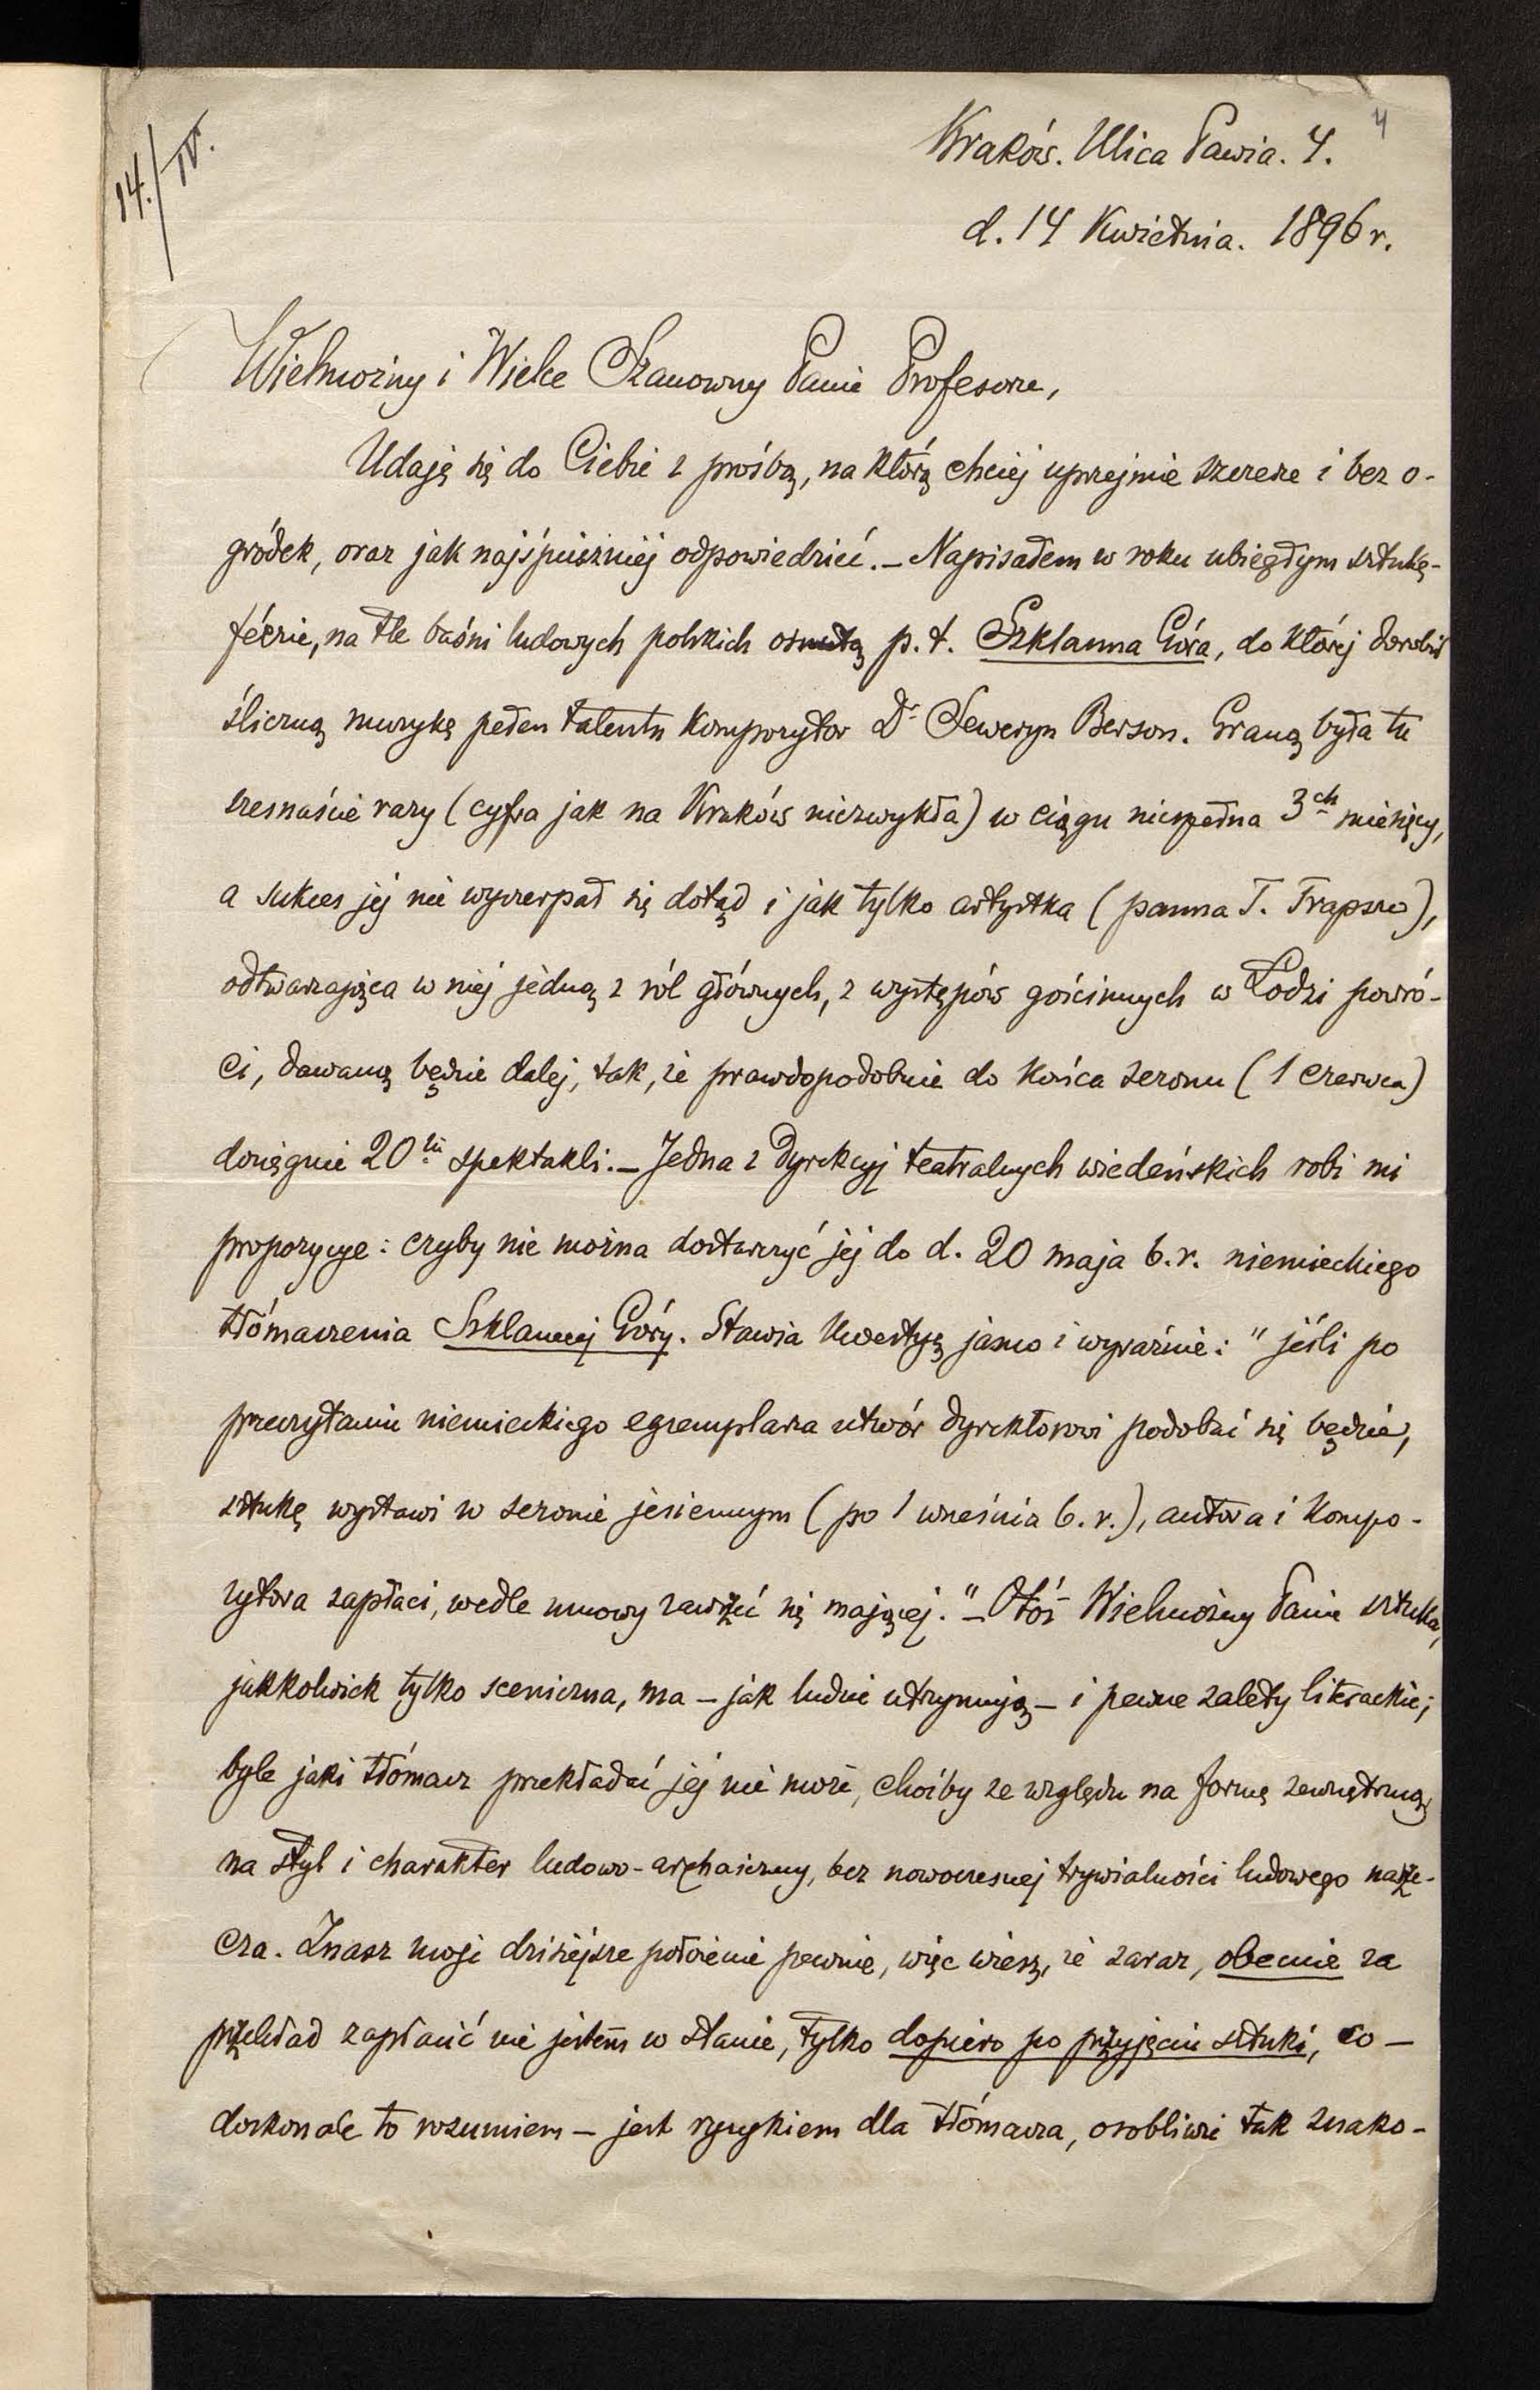 4
14./IV.
Kraków. Ulica Pawia. 4.
d. 14 Kwietnia. 1896 r.
Wielmożny i Wielce Szanowny Panie Profesorze,
Udaję się do Ciebie z prośbą, na którą chciej uprzejmie szczerze i bez o-
gródek, oraz jak najśpieszniej odpowiedzieć. – Napisałem w roku ubiegłym sztukę-
féerie, na tle baśni ludowych polskich osnutą p. t. Szklanna Góra, do której dorobił
śliczną muzykę pełen talentu kompozytor Dr Seweryn Berson. Graną była tu
szesnaście razy (cyfra jak na Kraków niezwykła) w ciągu niespełna 3ch miesięcy,
a sukces jej nie wyczerpał się dotąd i jak tylko artystka (panna T. Trapszo),
odtwarzająca w niéj jedną z ról głównych, z występów gościnnych w Łodzi powró-
ci, dawaną będzie dalej, tak, że prawdopodobnie do końca sezonu (1 czerwca)
dosięgnie 20tu spektakli. – Jedna z dyrekcyj teatralnych wiedeńskich robi mi
propozycye: czyby nie można dostarczyć jéj do d. 20 maja b. r. niemieckiego
tłómaczenia Szklannej Góry. Stawia kwestyę jasno i wyraźnie: "jeśli po
przeczytaniu niemieckiego egzemplarza utwór dyrektorowi podobać się będzie,
sztukę wystawi w sezonie jesiennym (po 1 września b. r.), autora i kompo-
zytora zapłaci, wedle umowy zawrzeć się mającej." – Otóż Wielmożny Panie sztuka,
jakkolwiek tylko sceniczna, ma – jak ludzie utrzymują – i pewne zalety literackie;
byle jaki tłómacz przekładać jéj nie może, choćby ze względu na formę zewnętrzną,
na styl i charakter ludowo-archaiczny, bez nowoczesnej trywialności ludowego narze-
cza. Znasz moje dzisiejsze położenie pewnie, więc wiesz, że zaraz, obecnie za
przekład zapłacić nie jestem w stanie, tylko dopiero po przyjęciu sztuki, co –
doskonale to rozumiem – jest ryzykiem dla tłómacza, osobliwie tak znako-